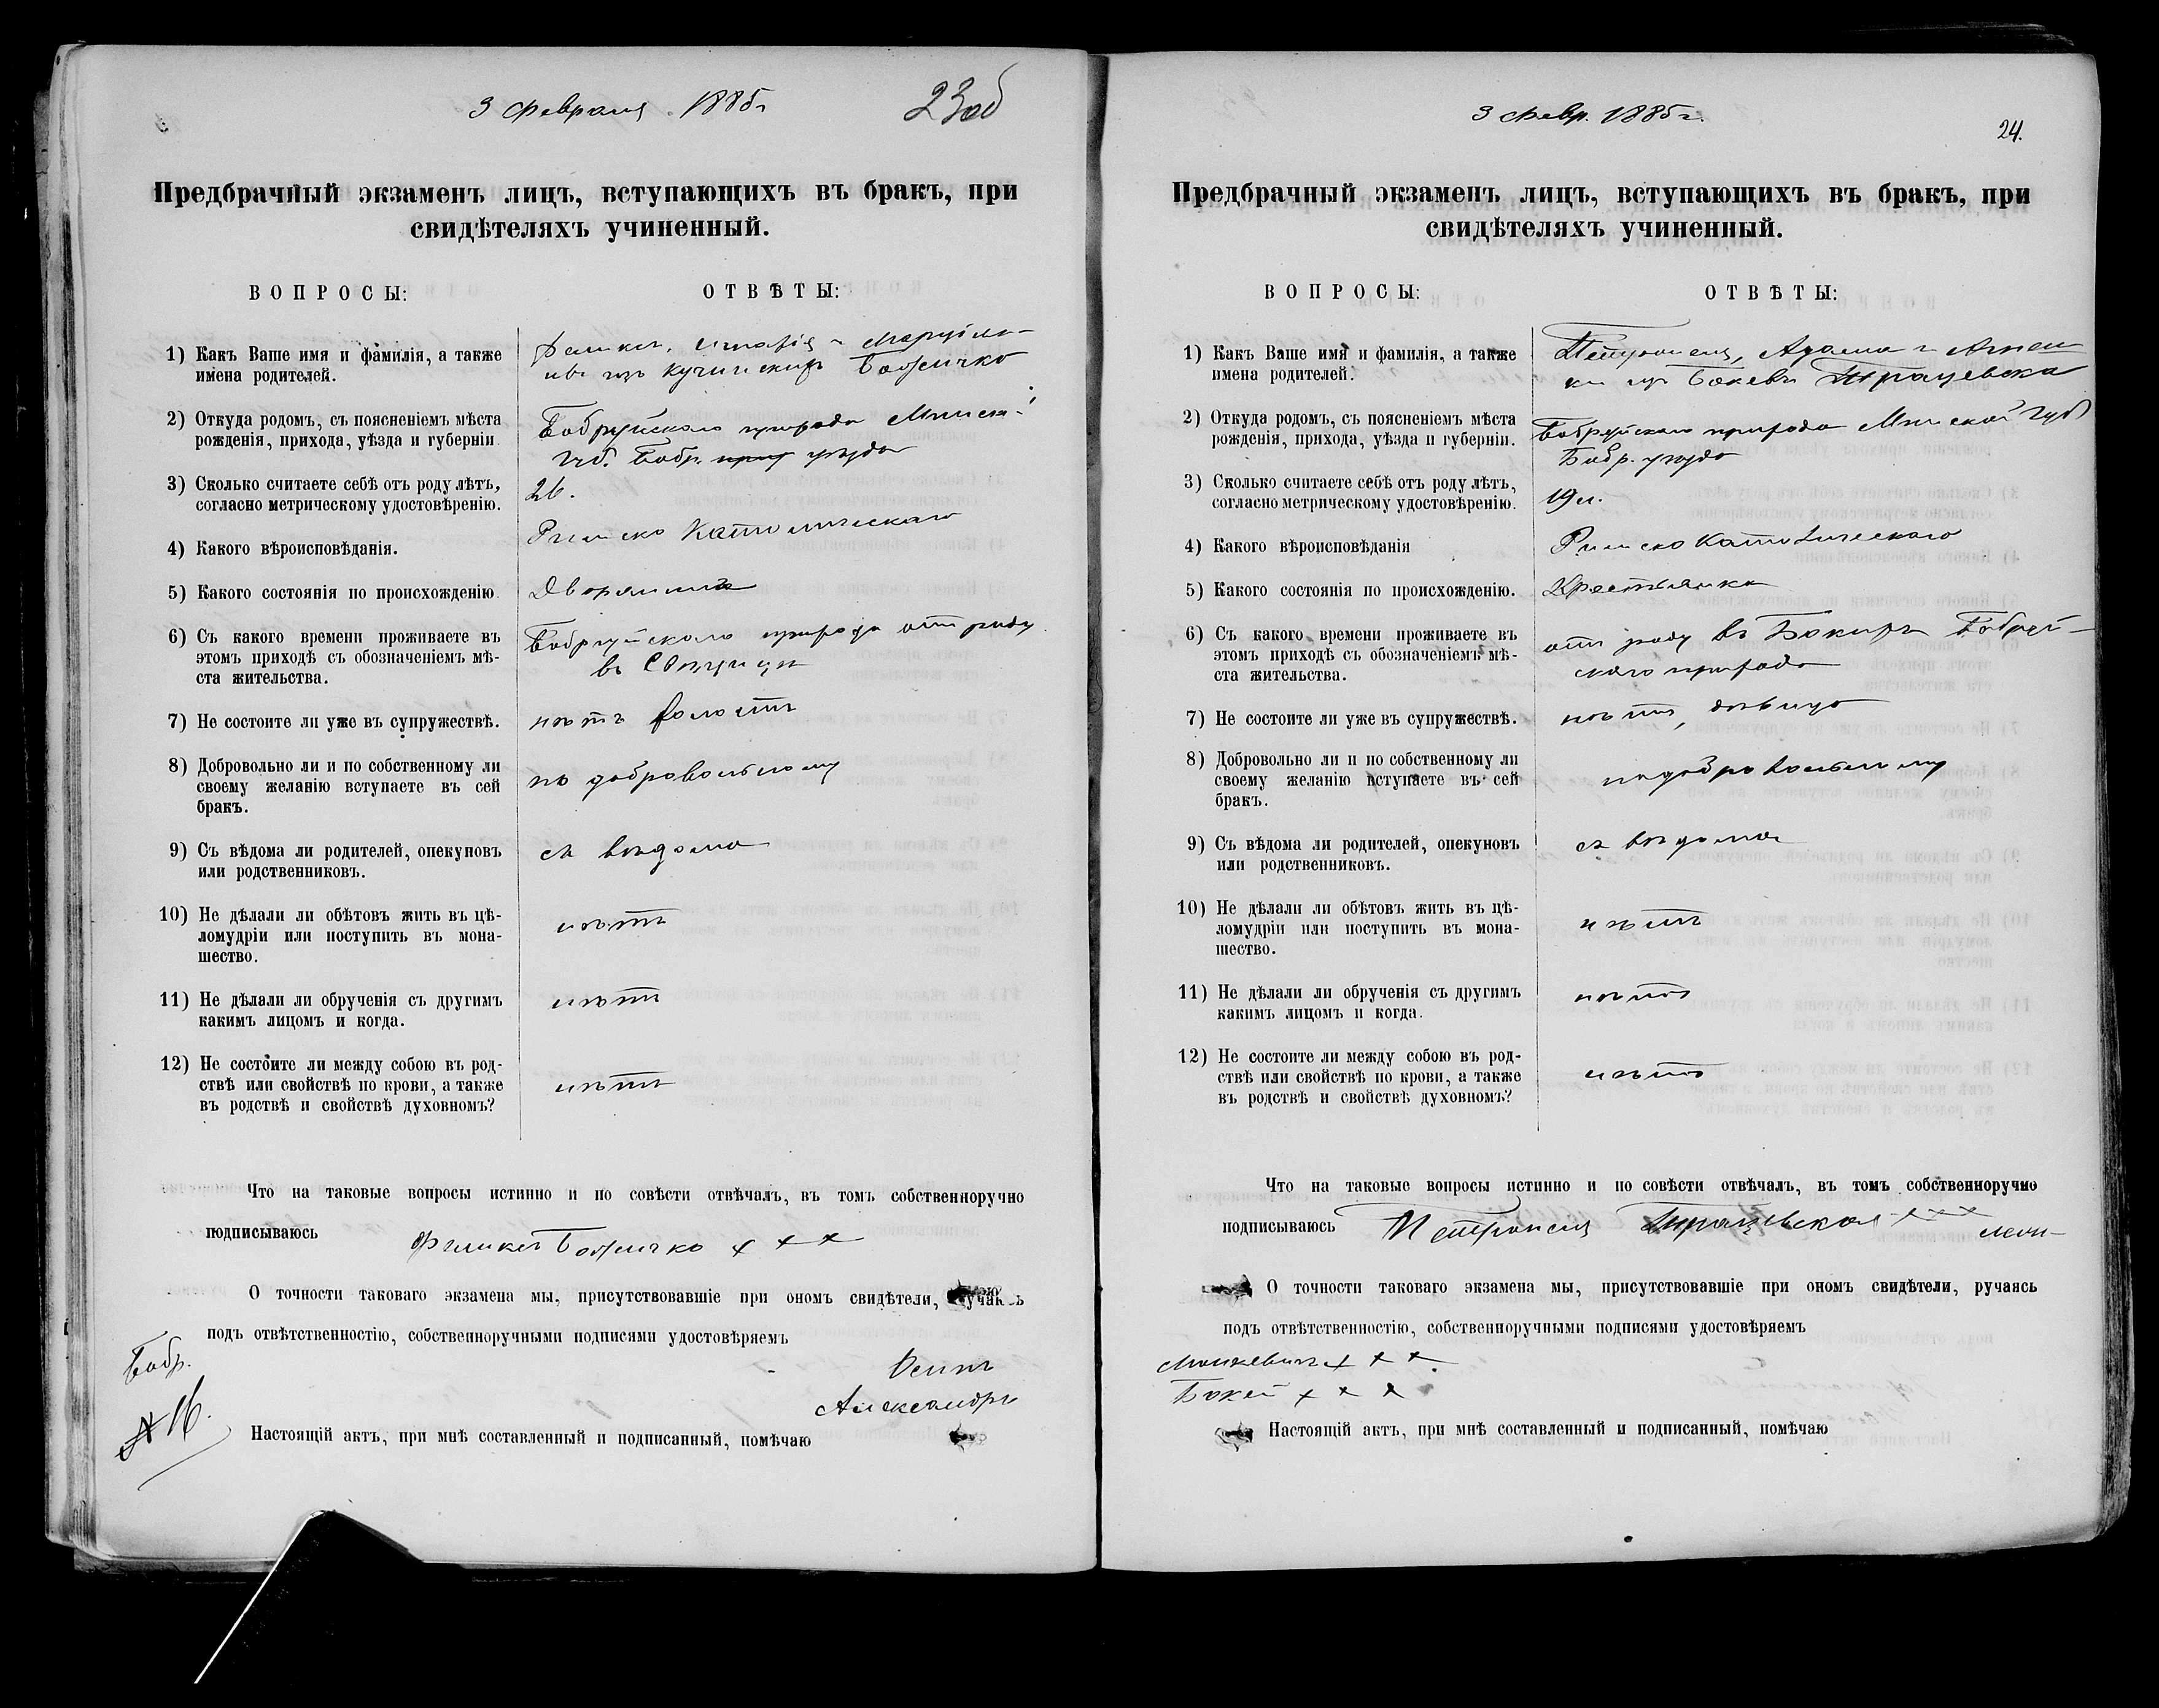 3 февраля 1885г
23об
Предбрачный экзаменъ лицъ, вступающихъ въ бракъ, при
свидѣтеляхъ учиненный.
ВОПРОСЫ:
ОТВѢТЫ:
1) Какъ Ваше имя и фамилія, а также
имена родителей.
Феликсъ,
изъ Божичко
2) Откуда родомъ, съ поясненіемъ мѣста
рожденія, прихода, уѣзда и губерніи.
Бобруйскаго прихода Минск.
губ. Бобр. уѣзда
3) Сколько считаете себѣ отъ роду лѣтъ,
согласно метрическому удостовѣренію.
26.
4) Какого вѣроисповѣданія.
Римско Католическаго
5) Какого состоянія по происхожденію.
Дворянинъ
6) Съ какого времени проживаете въ
этомъ приходѣ съ обозначеніемъ мѣ-
ста жительства.
Бобруйскаго прихода отъ роду
въ
7) Не состоите ли уже въ супружествѣ.
нѣтъ холостъ
8) Добровольно ли и по собственному ли
своему желанію вступаете въ сей
бракъ.
по добровольному
9) Съ вѣдома ли родителей, опекуновъ
или родственниковъ.
съ вѣдома
10) Не дѣлали ли обѣтовъ жить въ цѣ-
ломудріи или поступить въ мона-
шество.
нѣтъ
11) Не дѣлали ли обрученія съ другимъ
какимъ лицомъ и когда.
нѣтъ
12) Не состоите ли между собою въ род-
ствѣ или свойствѣ по крови, а также
въ родствѣ и свойствѣ духовномъ?
нѣтъ
Что на таковые вопросы истинно и по совѣсти отвѣчалъ, въ томъ собственноручно
подписываюсь Феликсъ Божичко + + +
О точности таковаго экзамена мы, присутствовавшіе при ономъ свидѣтели,
подъ отвѣтственностію, собственноручными подписями удостовѣряемъ
Бобр.
Александръ
№ 16.
Настоящій актъ, при мнѣ составленный и подписанный, помѣчаю
3 февр. 1885г.
24.
Предбрачный экзаменъ лицъ, вступающихъ въ бракъ, при
свидѣтеляхъ учиненный.
ВОПРОСЫ:
ОТВѢТЫ:
1) Какъ Ваше имя и фамилія, а также
имена родителей.
Петронеля, Адама и Агнеш
ки изъ Бокевъ
2) Откуда родомъ, съ поясненіемъ мѣста
рожденія, прихода, уѣзда и губерніи.
Бобруйскаго прихода Минской губ
Бобр. уѣзда
3) Сколько считаете себѣ отъ роду лѣтъ,
согласно метрическому удостовѣренію.
19 л.
4) Какого вѣроисповѣданія
Римско Католическаго
5) Какого состоянія по происхожденію.
Крестьянка
6) Съ какого времени проживаете въ
этомъ приходѣ съ обозначеніемъ мѣ-
ста жительства.
отъ роду въ Бобруй-
скаго прихода
7) Не состоите ли уже въ супружествѣ.
нѣтъ, дѣвица
8) Добровольно ли и по собственному ли
своему желанію вступаете въ сей
бракъ.
по добровольному
9) Съ вѣдома ли родителей, опекуновъ
или родственниковъ.
съ вѣдома
10) Не дѣлали ли обѣтовъ жить въ цѣ-
ломудріи или поступить въ мона-
шество.
нѣтъ
11) Не дѣлали ли обрученія съ другимъ
какимъ лицомъ и когда.
нѣтъ
12) Не состоите ли между собою въ род-
ствѣ или свойствѣ по крови, а также
въ родствѣ и свойствѣ духовномъ?
нѣтъ
Что на таковые вопросы истинно и по совѣсти отвѣчалъ, въ томъ собственноручно
подписываюсь Петронеля + + +
О точности таковаго экзамена мы, присутствовавшіе при ономъ свидѣтели, ручаясь
подъ отвѣтственностію, собственноручными подписями удостовѣряемъ
+ + +
Бокей + + +
Настоящій актъ, при мнѣ составленный и подписанный, помѣчаю